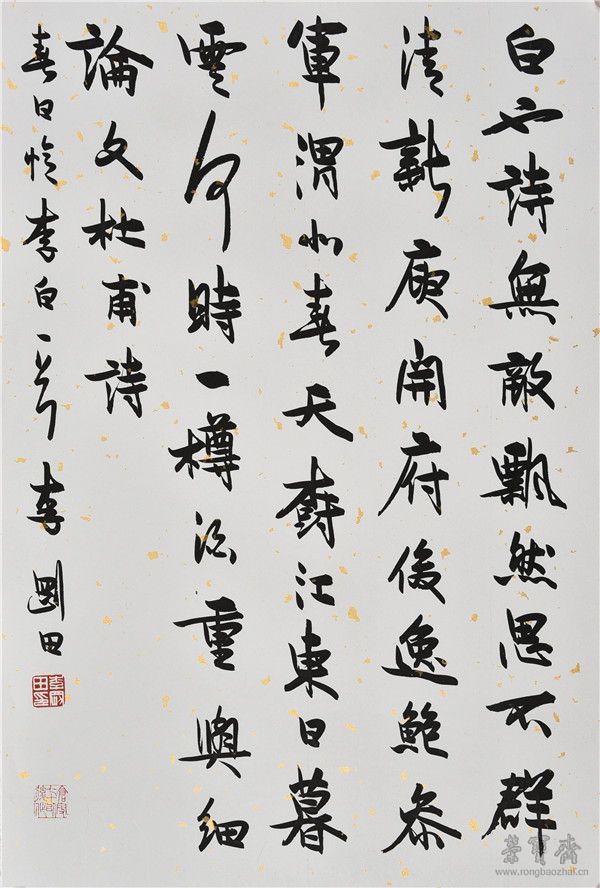 白也詩無敵飄然思不群
清新庾開府俊逸鮑參
軍渭北春天樹江東日暮
雲何時一樽酒重與細
論文杜甫詩
春日憶李白一首 李剛田
李剛田印
榮寶齋
www.rongbaozhai.cn